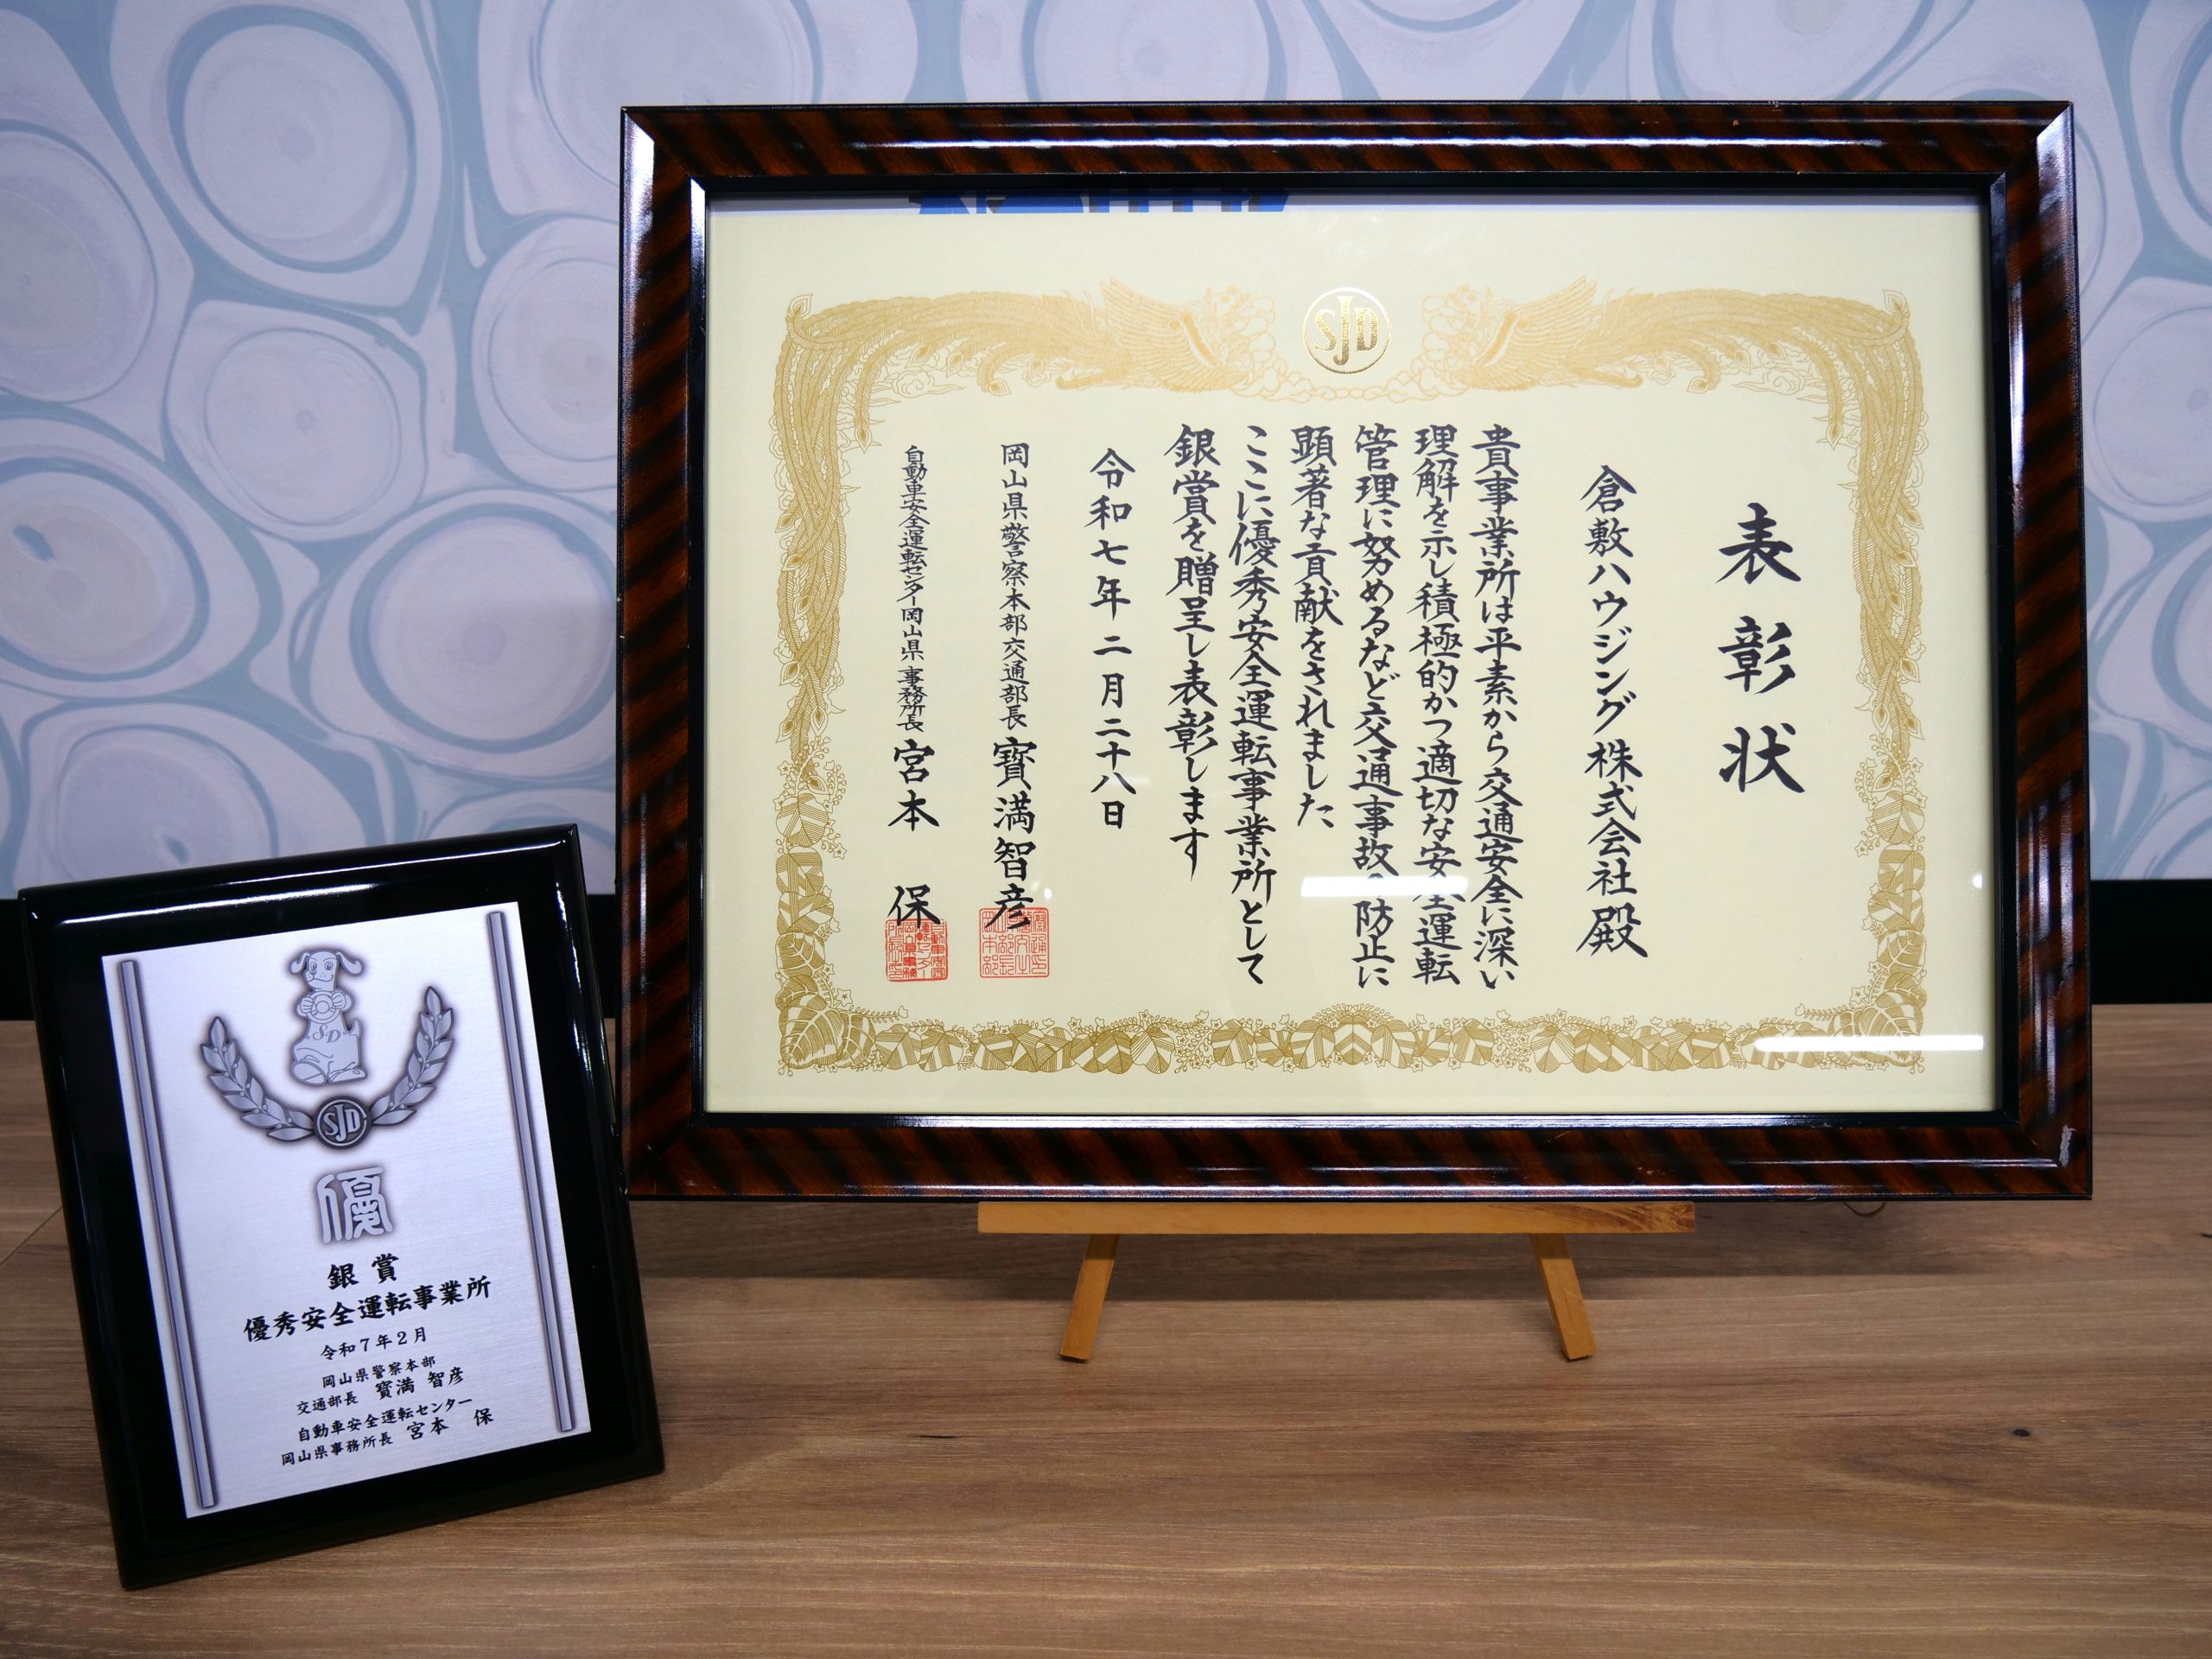 SJD
表彰状
倉敷ハウジング株式会社殿
貴事業所は平素から交通安全に深い
理解を示し積極的かつ適切な安全運転
管理に努めるなど交通事故の防止に
顕著な貢献をされました
ここに優秀安全運転事業所として
銀賞を贈呈し表彰します
令和七年二月二十八日
岡山県警察本部交通部長 寳満智彦
自動車安全運転センター岡山県事務所長 宮本 保
SD
SJD
優
銀賞
優秀安全運転事業所
令和7年2月
岡山県警察本部
交通部長 寳満 智彦
自動車安全運転センター
岡山県事務所長 宮本 保